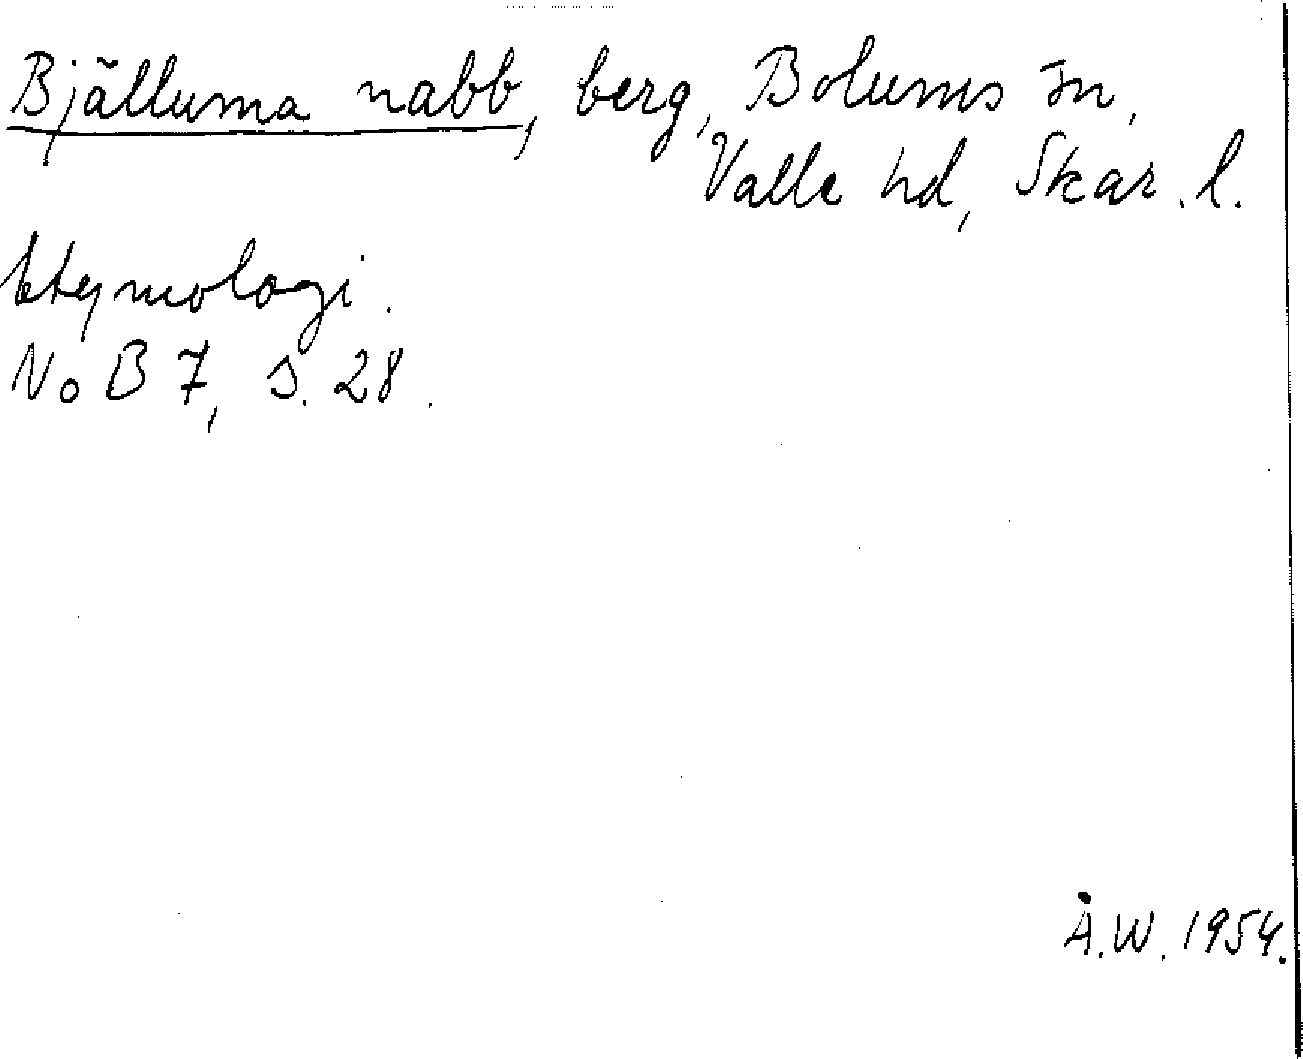 Bjälluma nabb, berg, Bolums sn,
Valle hd, Skar. l.
Etymologi.
NoB 7, s. 28.
Å.W. 1954.